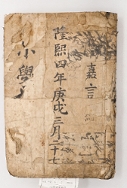 嘉言
隆熙四年庚戌三月二十七
小學